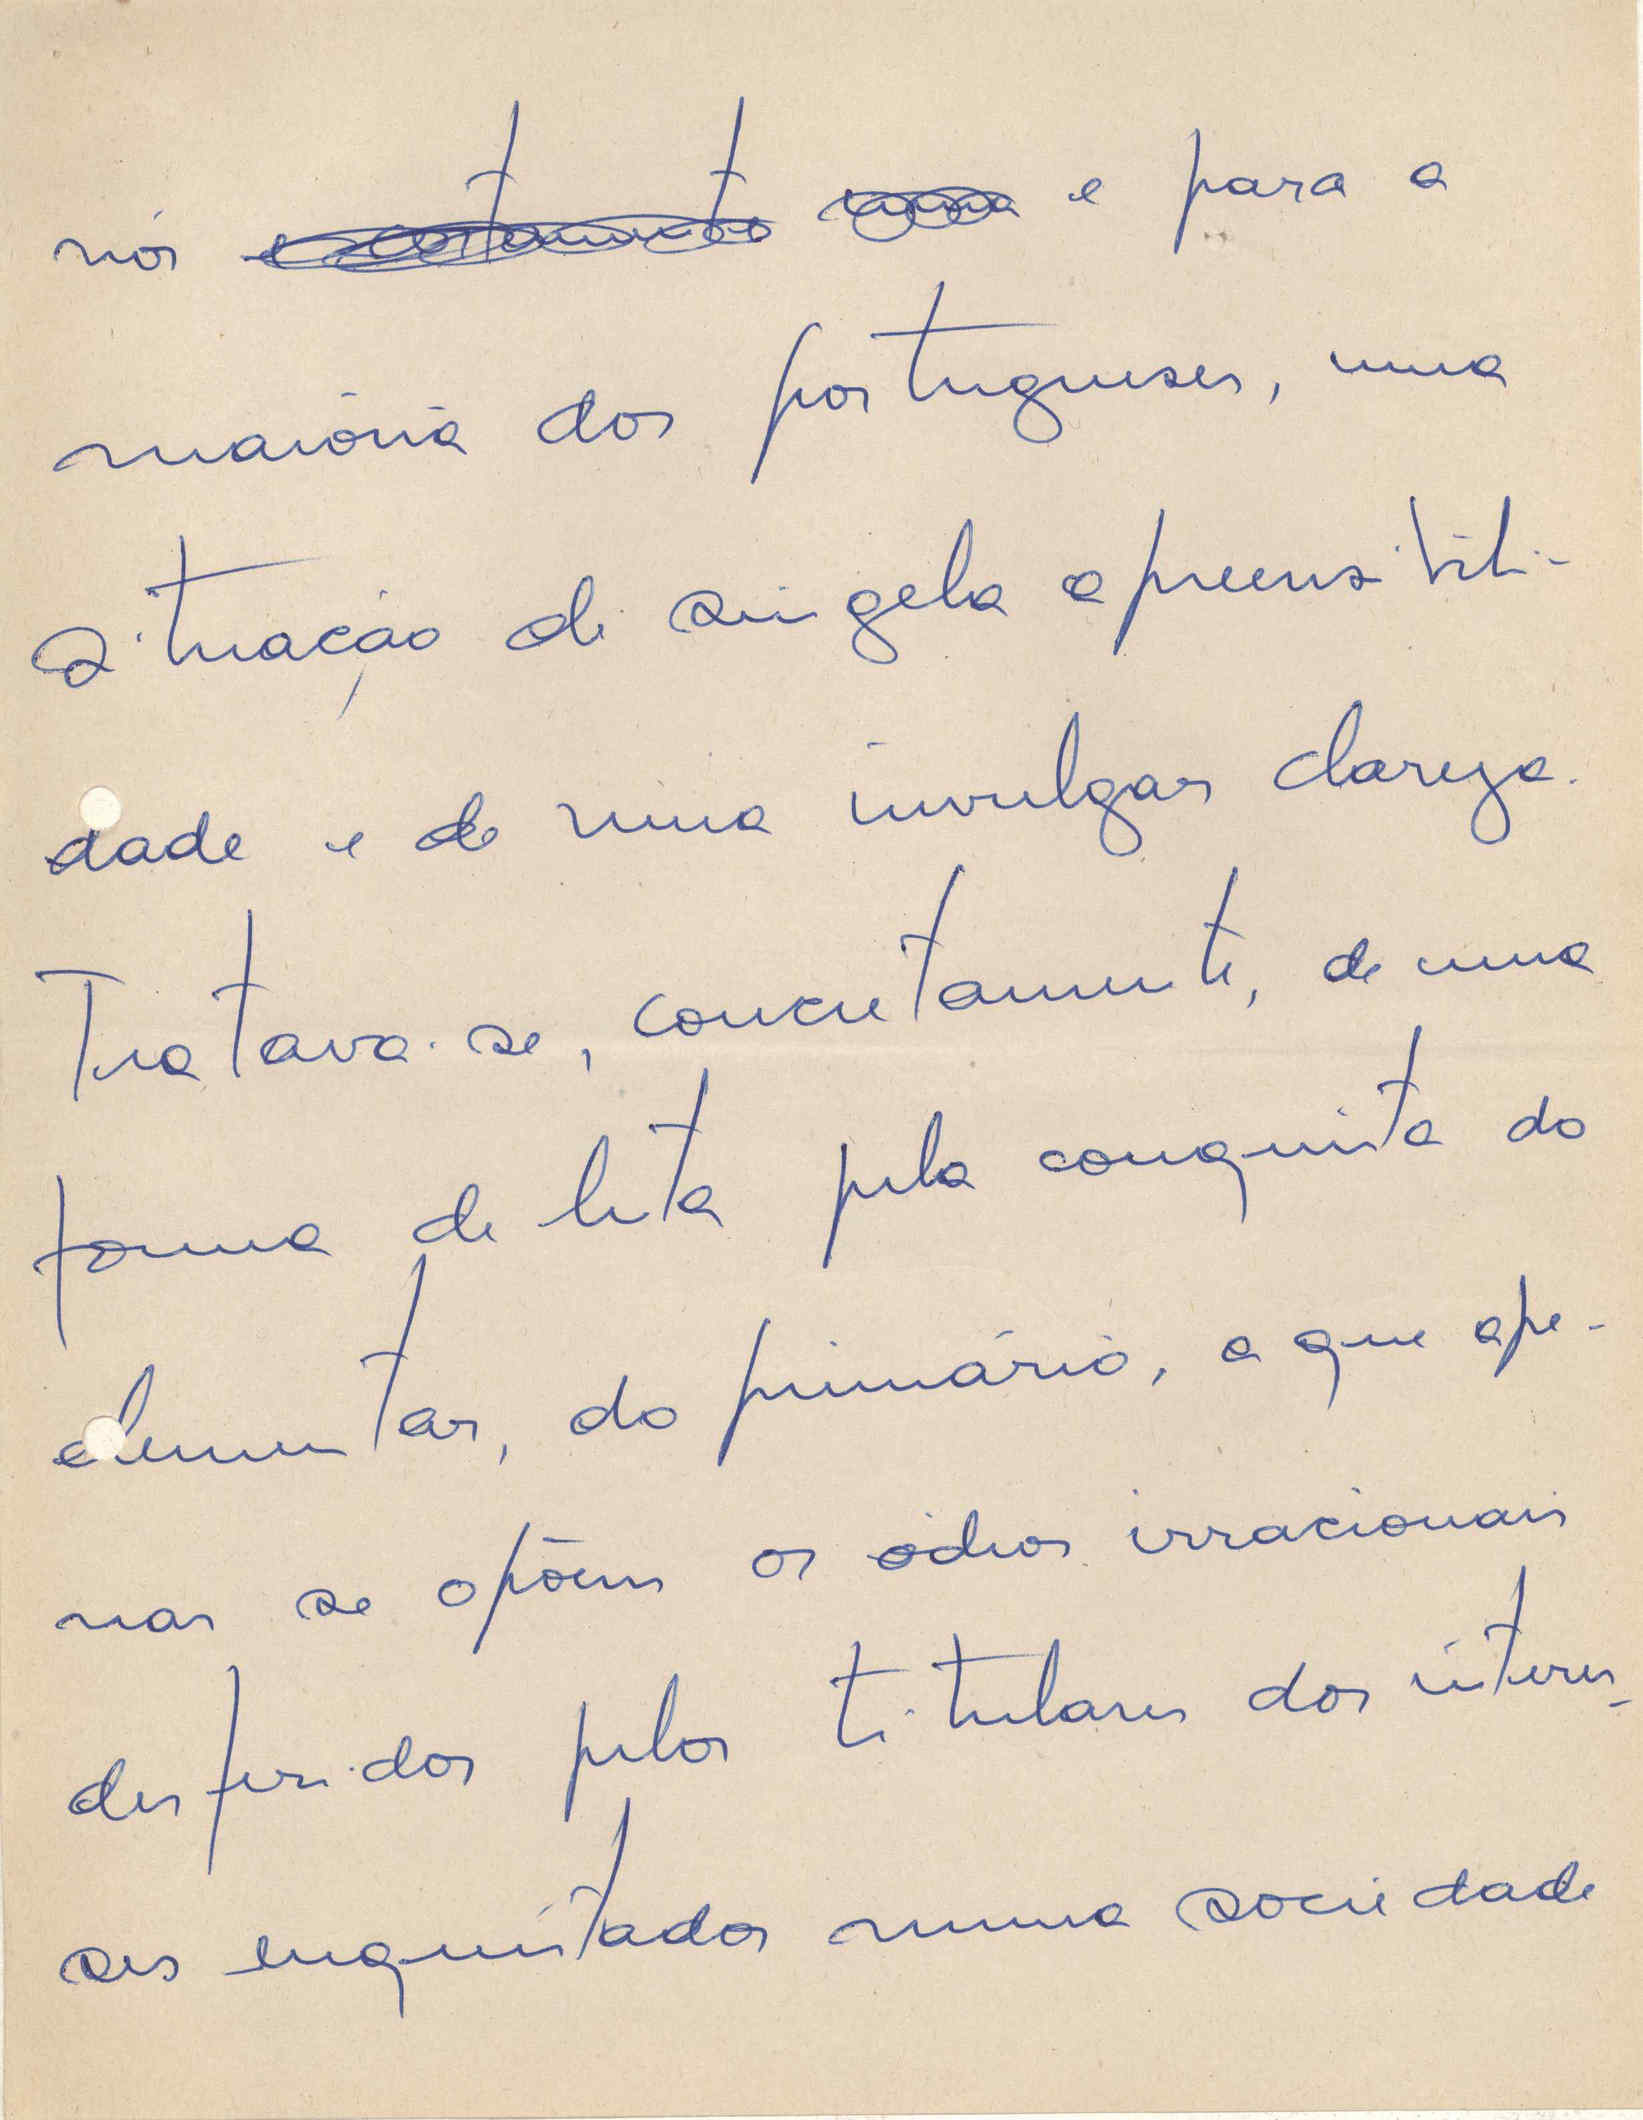 nós e para a
maioria dos portugueses, uma
situação de singela apreensibili-
dade e de uma invulgar clareza.
Tratava-se, concretamente, de uma
forma de luta pela conquista do
elementar, do primário, a que ape-
nas se opõem os ódios irracionais
desferidos pelos titulares dos interes-
ses enquistados numa sociedade